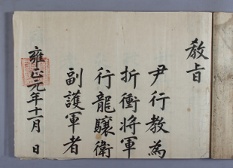 教旨
尹行教為
折衝將軍
行龍驤衛
副護軍者
雍正元年十一月 日